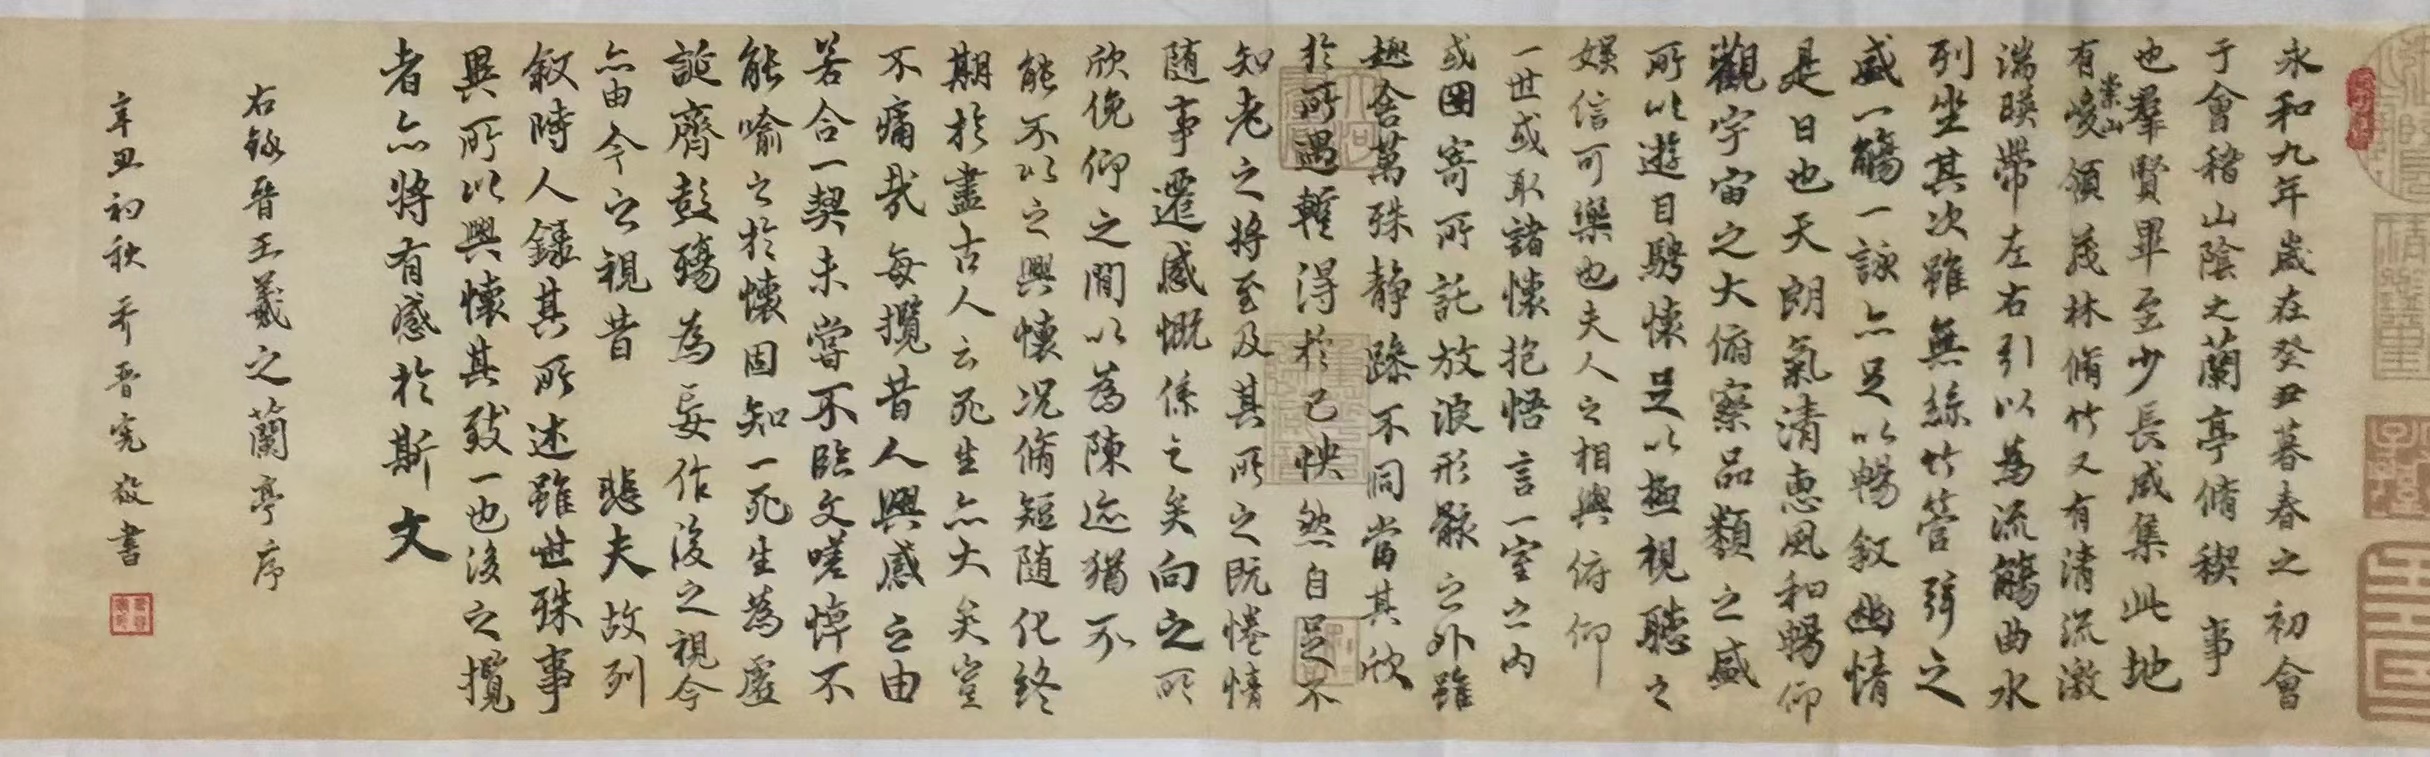 永和九年歲在癸丑暮春之初會
于會稽山陰之蘭亭脩稧事
也羣賢畢至少長咸集此地
有崇山峻領茂林脩竹又有清流激
湍暎帶左右引以為流觴曲水
列坐其次雖無絲竹管弦之
盛一觴一詠亦足以暢敘幽情
是日也天朗氣清惠風和暢仰
觀宇宙之大俯察品類之盛
所以遊目騁懷足以極視聽之
娛信可樂也夫人之相與俯仰
一世或取諸懷抱悟言一室之內
或因寄所託放浪形骸之外雖
趣舍萬殊靜躁不同當其欣
於所遇暫得於己怏然自足不
知老之將至及其所之既惓情
隨事遷感慨係之矣向之所
欣俛仰之間以為陳迹猶不
能不以之興懷況脩短隨化終
期於盡古人云死生亦大矣豈
不痛哉每攬昔人興感之由
若合一契未嘗不臨文嗟悼不
能喻之於懷固知一死生為虛
誕齊彭殤為妄作後之視今
亦由今之視昔 悲夫故列
敘時人錄其所述雖世殊事
異所以興懷其致一也後之攬
者亦將有感於斯文
右錄晉王羲之蘭亭序
辛丑初秋 晉 敬書